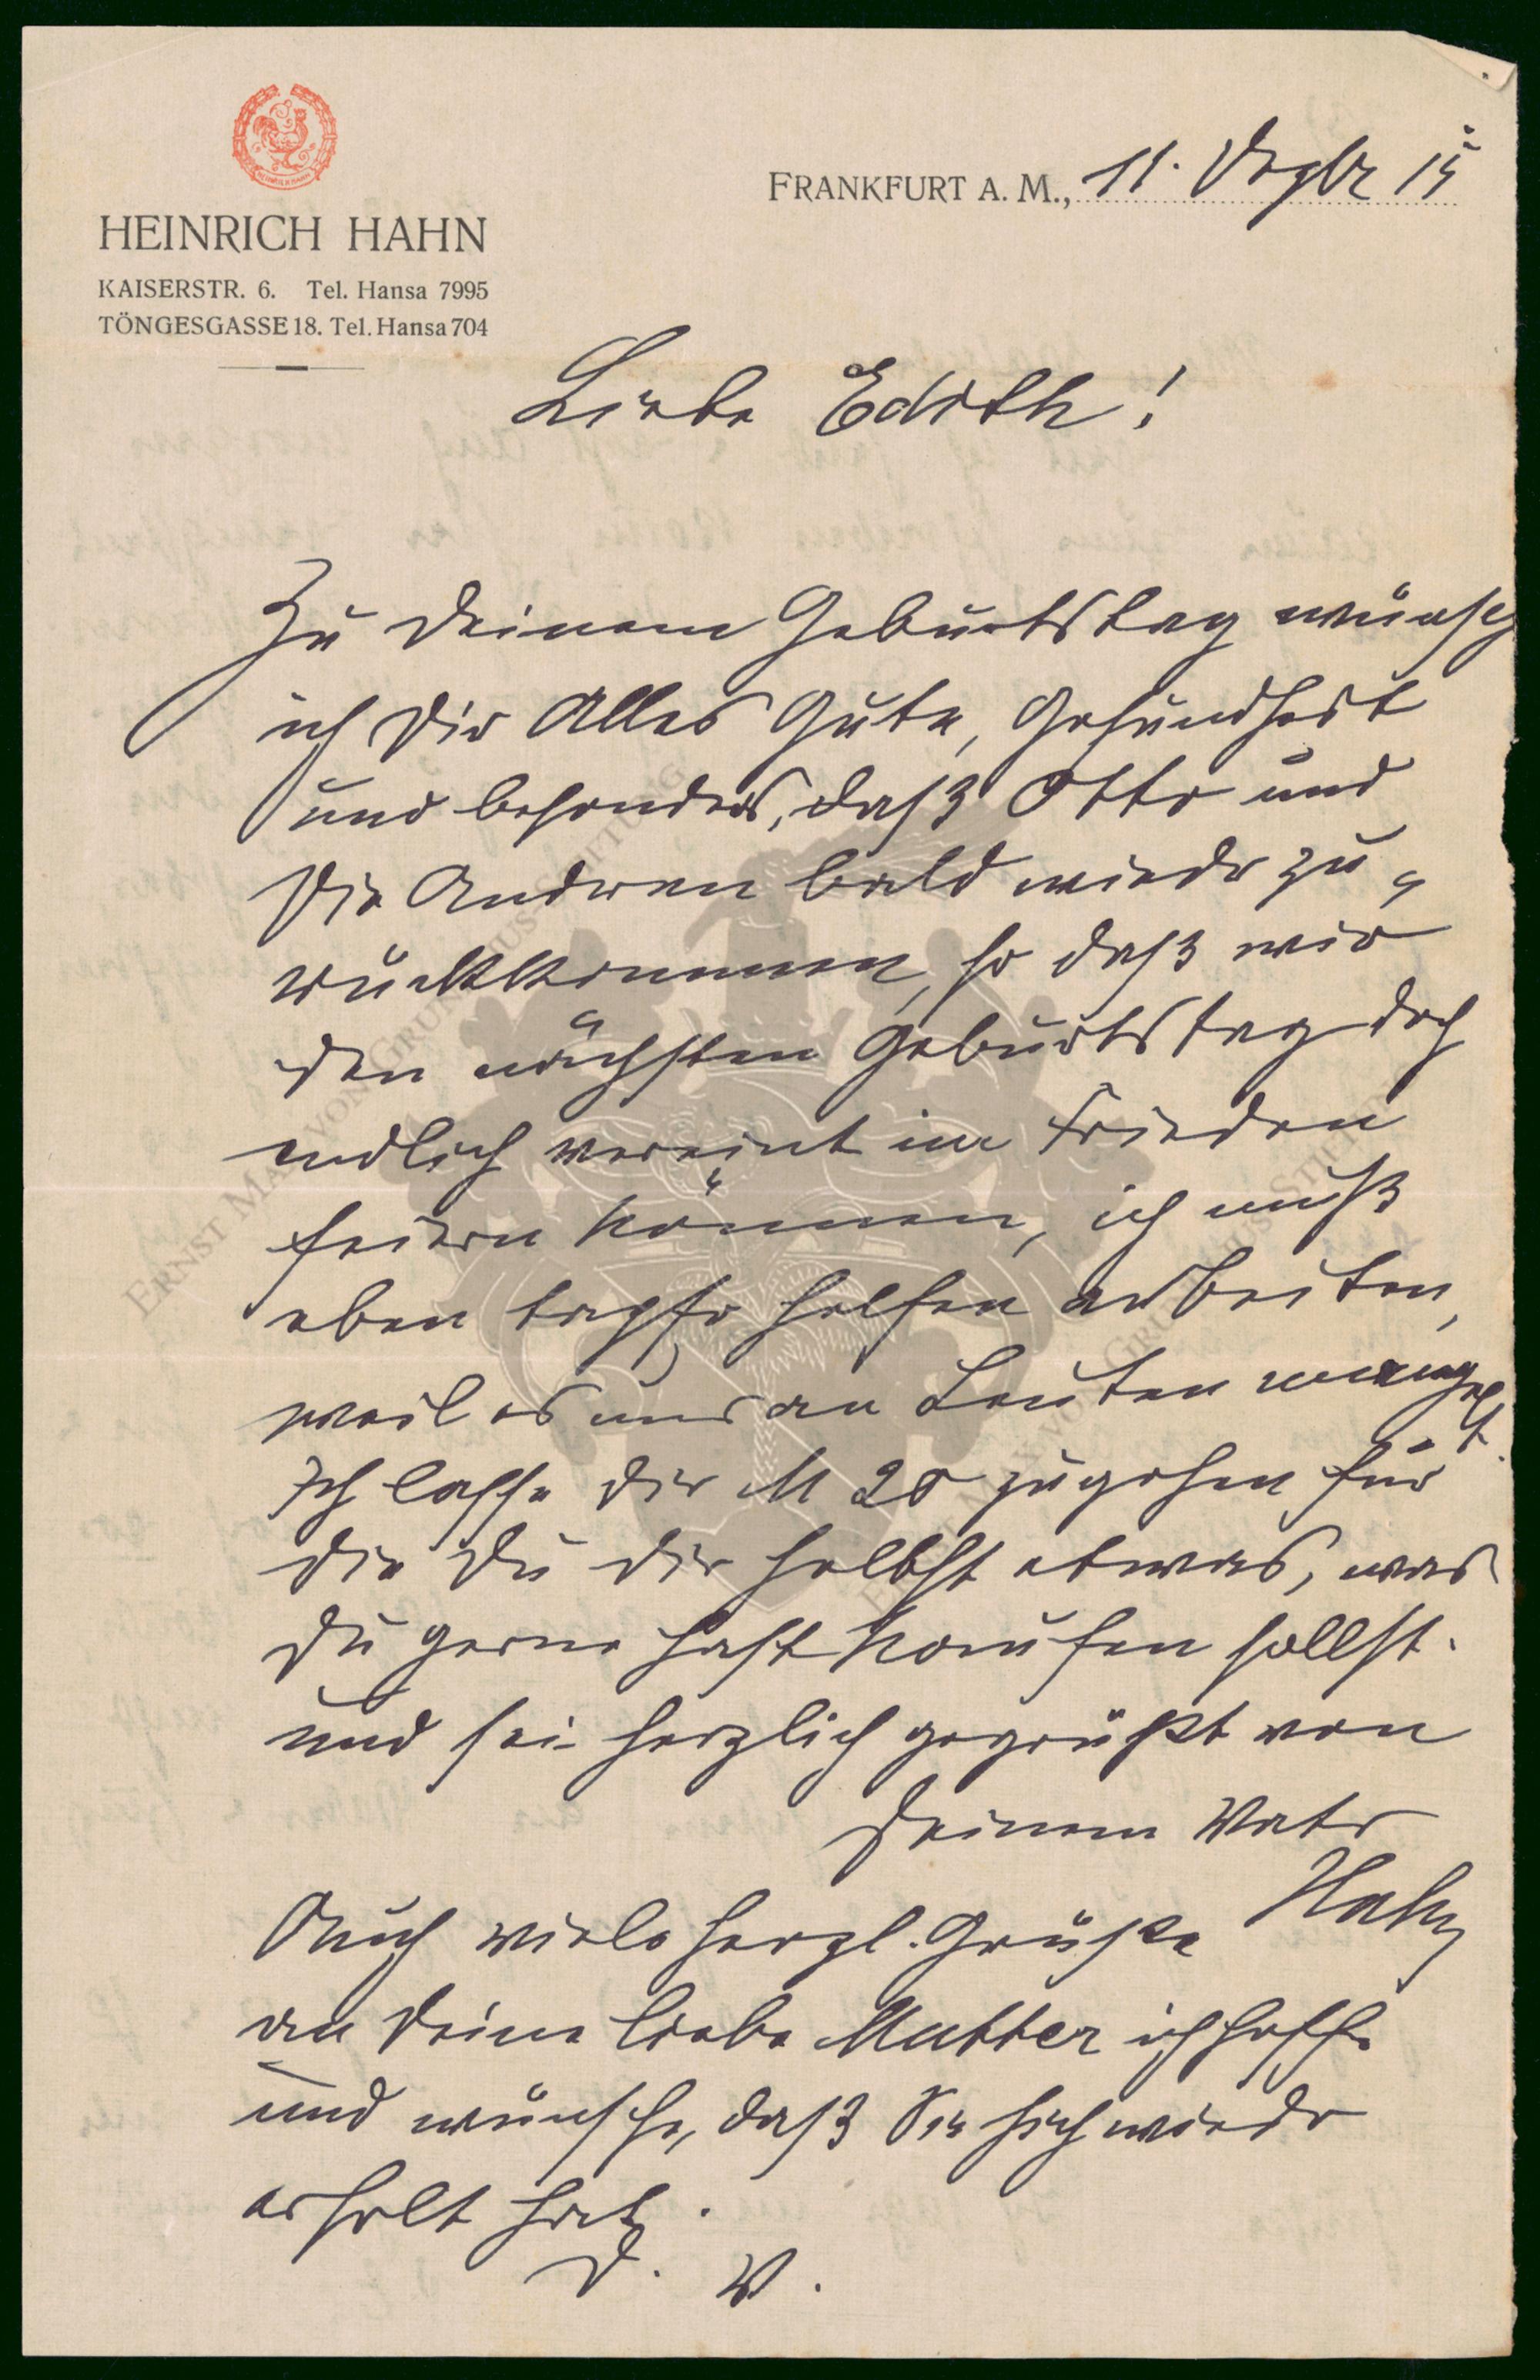 HEINRICH HAHN
KAISERSTR. 6. Tel. Hansa 7995
TÖNGESGASSE 18. Tel. Hansa 704
FRANKFURT A. M., 11. Dezbr 15
Liebe Edith!
Zu Deinem Geburtstag wünsch
ich Dir Alles Gute, Gesundheit
und besonders, daß Otto und
die Anderen bald wieder zu„
rückkommen, so daß wir
den nächsten Geburtstag doch
endlich vereint im Frieden
feiern können, ich muß
eben tapfer helfen arbeiten,
weil es uns an Leuten mangelt.
Ich lasse Dir M 20 zugehen für
die Du Dir selbst etwas, was
Du gerne hast kaufen sollst.
und sei herzlich gegrüßt von
Deinem Vater
Hahn
Auch viele herzl. Grüße
an Deine liebe Mutter ich hoffe
und wünsche, daß Sie sich wieder
erholt hat.
D. V.
ERNST MAX VON GRUNELIUS-STIFTUNG
ERNST MAX VON GRUNELIUS-STIFTUNG